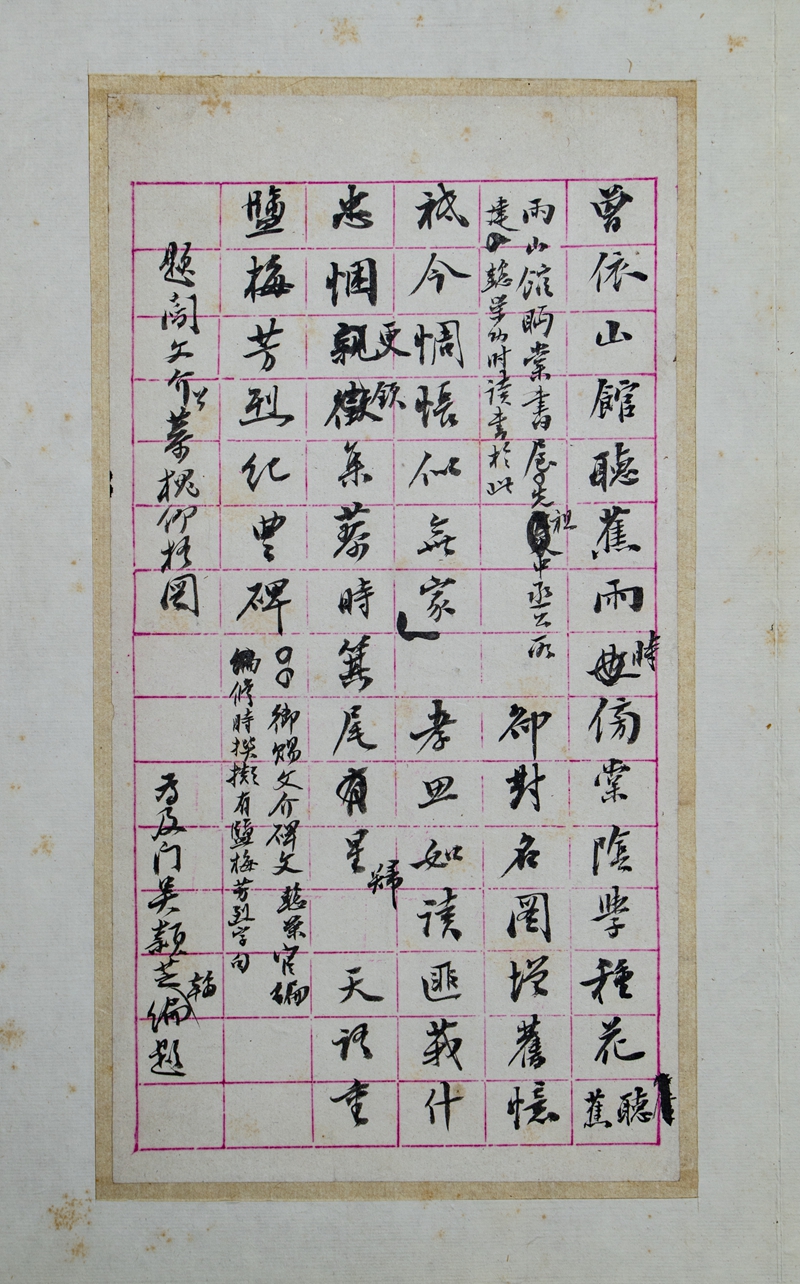 曾依山館聽蕉雨毋時傍棠陰學種花聽蕉
雨山館昞棠書屋先祖中丞公所
建懿榮幼時讀書於此
卻對名圖增舊憶
祇今惆悵似無家
孝思如讀匪莪什
忠悃親徵更欽年蔡時箕尾有星歸
天語重
鹽梅芳烈紀豐碑
御賜文介碑文懿榮官編
修時撰擬有鹽梅芳烈字句
題閻文介公慕槐仰梧圖
為及門吳穎芝編翰題